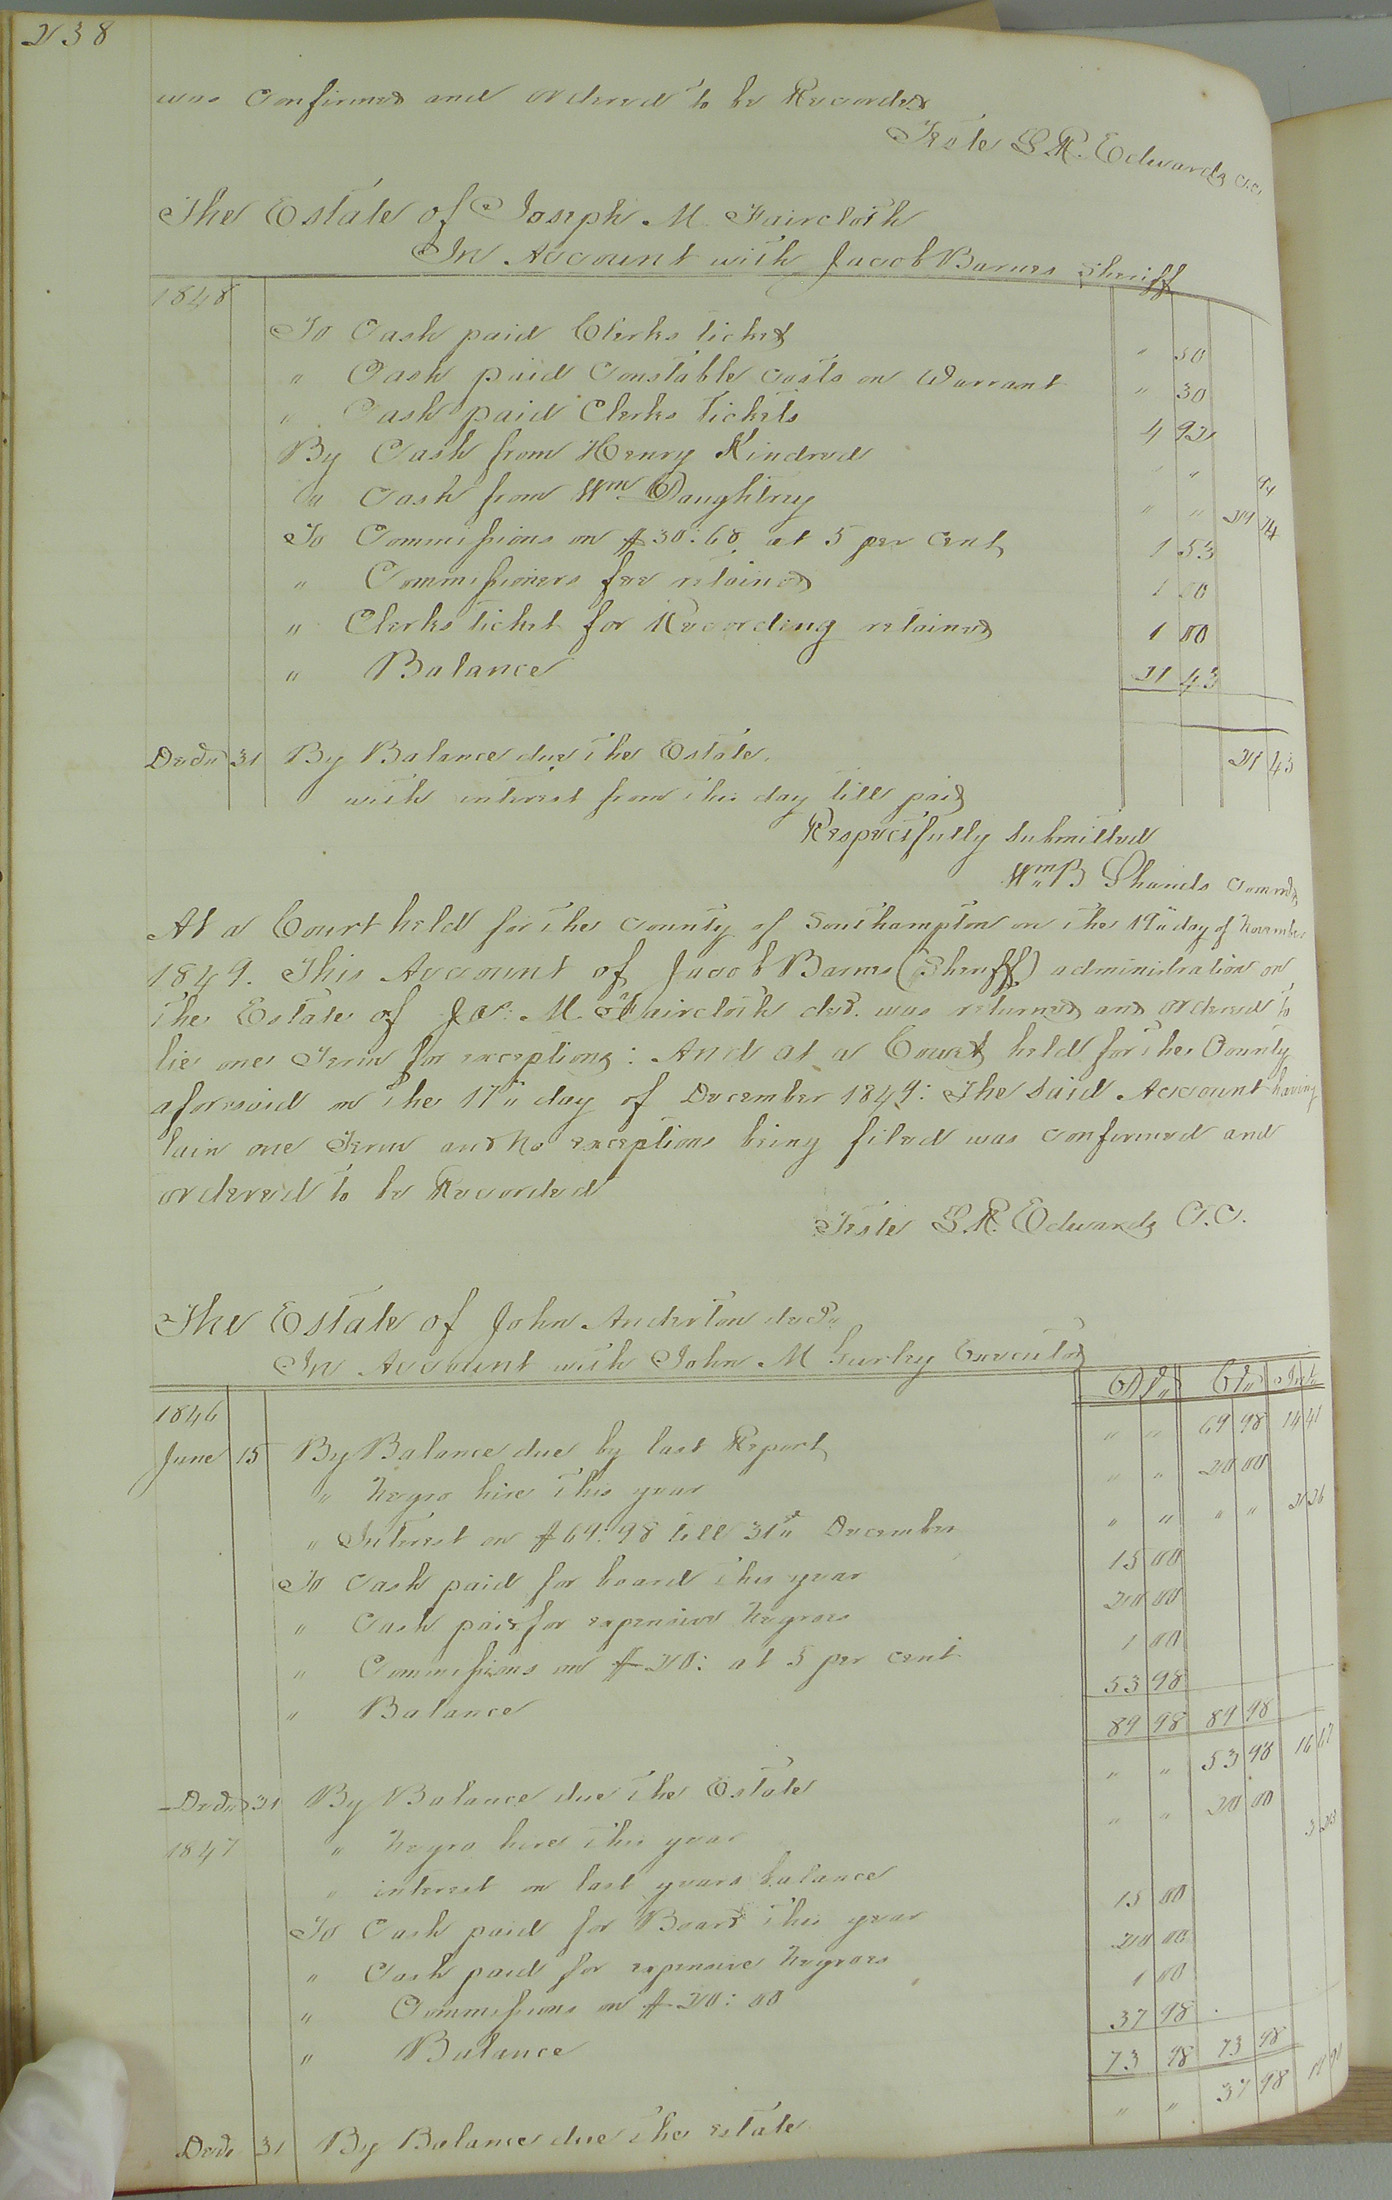 238
was Confirmed and ordered to be Recorded
Teste L R. Edwards C.C.
The Estate of Joseph M. Faircloth
In Account with Jacob Barnes Sheriff
1848
To Cash paid Clerks ticket " 50
" Cash paid Constable costs on Warrant " 30
" Cash paid Clerks Tickets 4 92
By Cash from Henry Kindred " " 94
" Cash from Wm Daughtrey " " 74
To Commissions on $30:68 at 5 per Cent 1 53
" Commissioners fee retained 1 50
" Clerks ticket for Recording retained 1 00
" Balance 21 43
Decdr 31 By Balance due the Estate. 21 43
with interest from this day till paid
Respectfully Submitted
Wm B Shands Commr
At a Court held for the County of Southampton on the 19" day of November
1849. This Account of Jacob Barnes (Sheriff) administration on
the Estate of Jos: M. Faircloth decd. was returned and ordered to
lie one Term for exceptions: And at a Court held for the County
aforesaid on the 17" day of December 1849: The Said Account having
lain one Term and No exceptions being filed was confirmed and
ordered to be Recorded
Teste L.R. Edwards C.C.
The Estate of John Anderton decd"
In Account with John M Gurley Executor
Dr" Cr" Int"
1846
June 15 By Balance due by last Report " " 69 98 14 41
" Negro hire this year " " 20 00
" Interest on $69:98 till 31st" December " " " " 2 26
To Cash paid for board this year 15 00
" Cash paid for expensive Negroes 20 00
" Commissions on $20: at 5 per cent 1 00
" Balance 53 98
89 98 89 98
Decdr 31 By Balance due the Estate " " 53 98 16 67
1847 " Negro hire this year " " 20 00
" interest on last years balance 3 23
To Cash paid for Board this year 15 00
" Cash paid for expensive Negroes 20 00
" Commissions on $20:00 1 00
" Balance 37 98
73 98 73 98
Decdr 31 By Balance due the estate " " 37 98